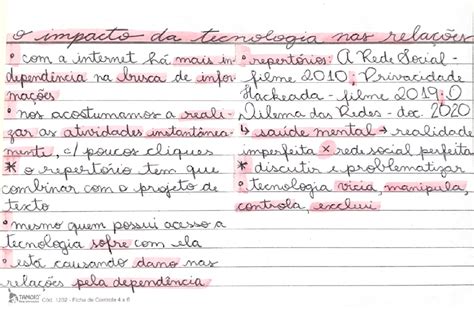 o impacto da tecnologia nas relações
° com a internet há mais in-
dependência na busca de infor-
mações
° nos acostumamos a reali-
zar as atividades instantânea-
mente, c/ poucos cliques
* o repertório tem que
combinar com o projeto de
texto
° mesmo quem possui acesso a
tecnologia sofre com ela
° está causando dano nas
relações pela dependência
° repertórios: A Rede Social -
filme 2010; Privacidade
Hackeada - filme 2019; O
Dilema das Redes - doc 2020
↳ saúde mental → realidade
imperfeita × rede social perfeita
* discutir e problematizar
° tecnologia vicia, manipula,
controla, exclui
TAMOIO Cód. 1202 - Ficha de Controle 4 x 6